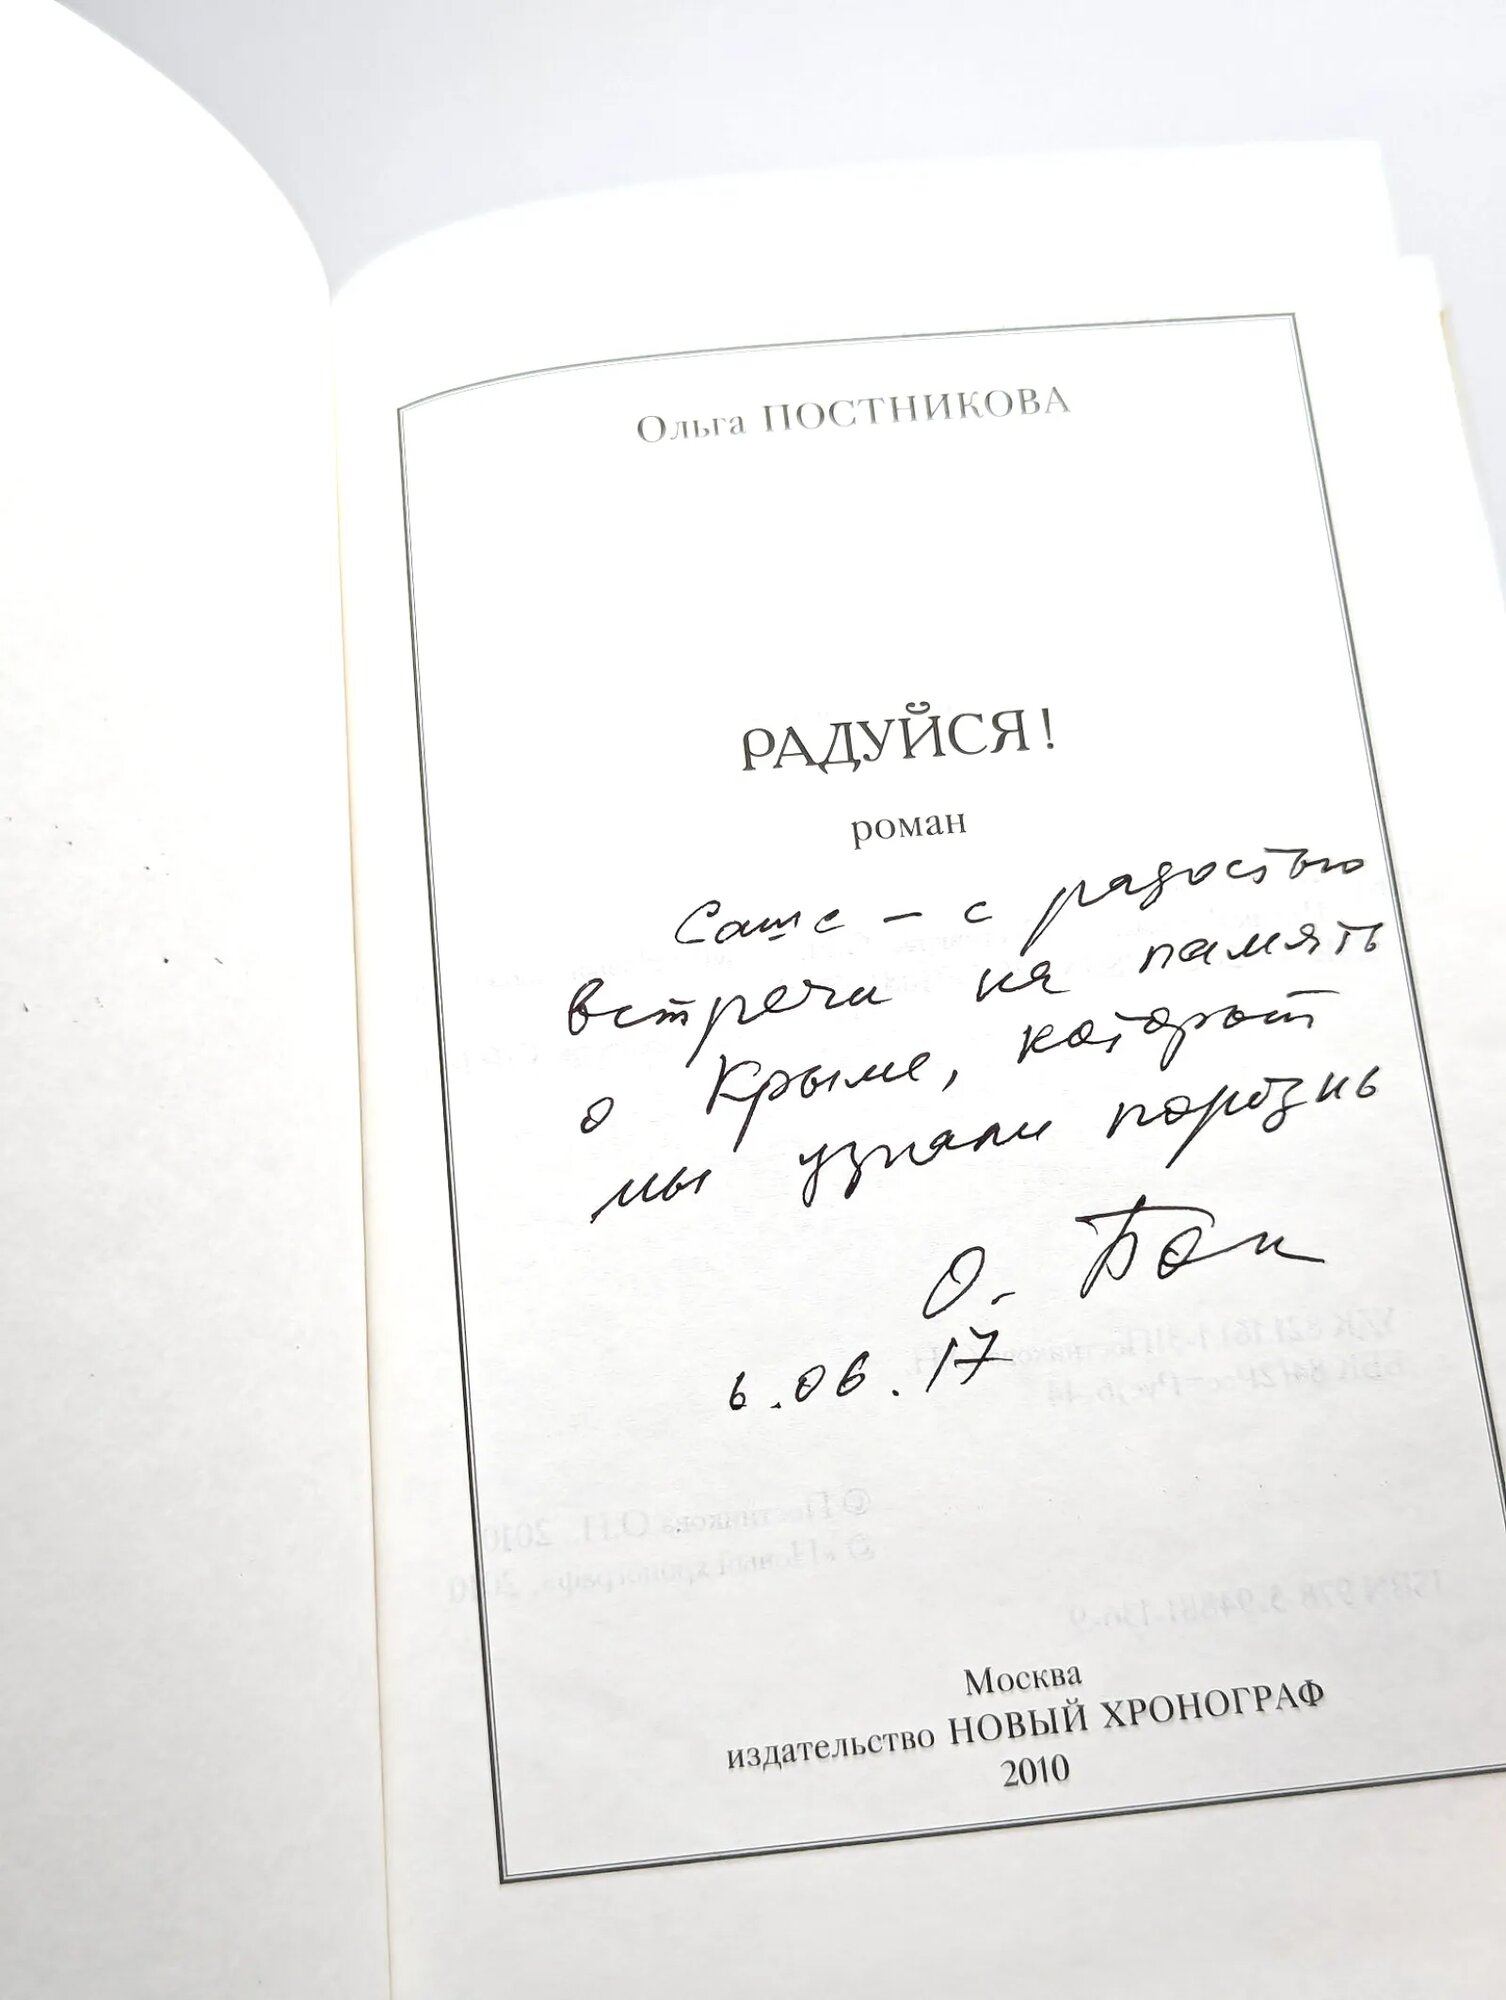 Ольга ПОСТНИКОВА
РАДУЙСЯ!
роман
Саше – с радостью
встречи на память
о Крыме, который
мы узнали порознь
О.
6.06.17
Москва
издательство НОВЫЙ ХРОНОГРАФ
2010